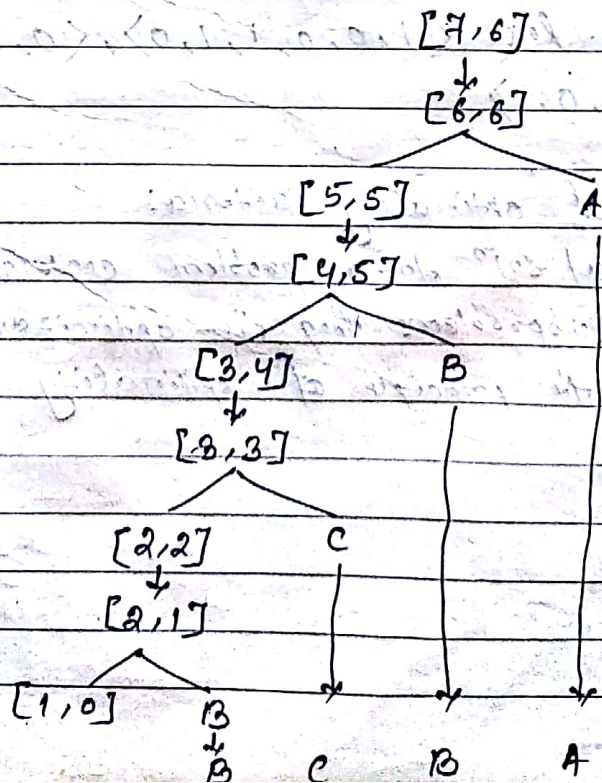 [7,6]
[6,6]
[5,5] A
[4,5]
[3,4] B
[3,3]
[2,2] C
[2,1]
[1,0] B
B C B A